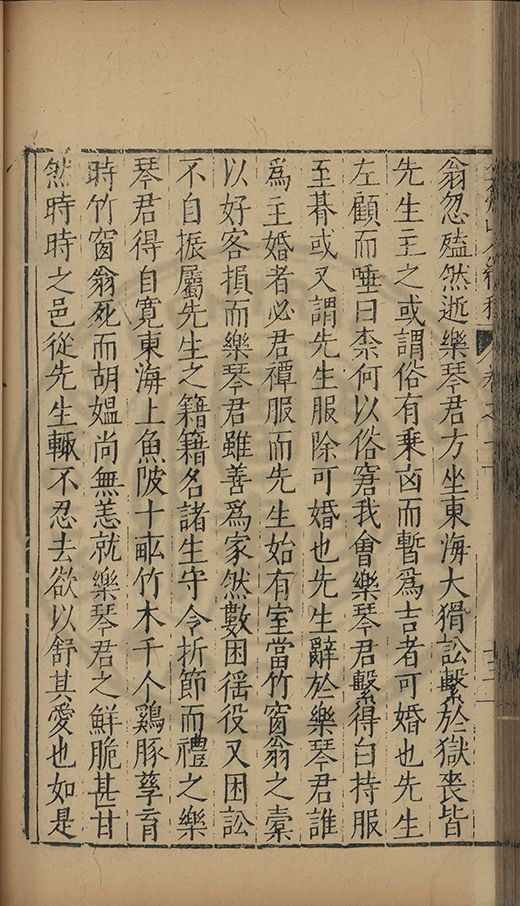 翁忽磕然逝樂琴君方坐東海大猾訟繫於獄喪皆
先生主之或謂俗有乗凶而暫爲吉者可婚也先生
左顧而唾曰柰何以俗窘我會樂琴君繫得白持服
至朞或又謂先生服除可婚也先生辭於樂琴君誰
爲主婚者必君禫服而先生始有室當竹窗翁之橐
以好客損而樂琴君雖善爲家然數困徭役又困訟
不自振屬先生之籍籍名諸生守令折節而禮之樂
琴君得自寛東海上魚陂十畞竹木千个鷄豚孳育
時竹窗翁死而胡媪尚無恙就樂琴君之鮮脆甚甘
然時時之邑從先生輙不忍去欲以舒其愛也如是